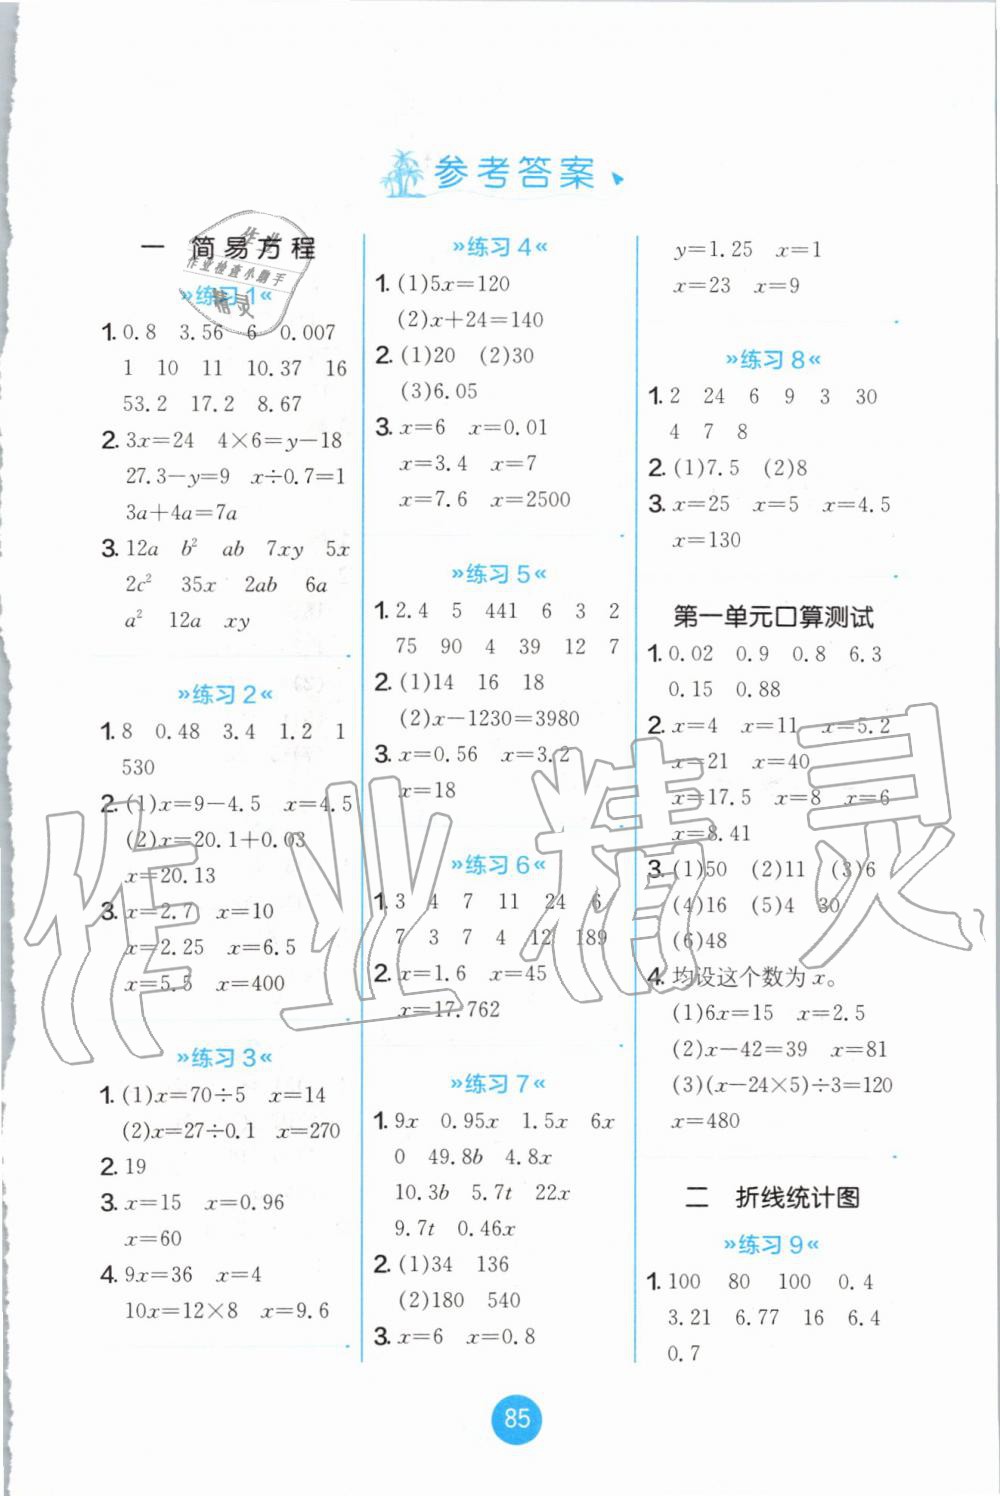 参考答案
一 简易方程
»练习1«
1. 0.8 3.56 6 0.007
1 10 11 10.37 16
53.2 17.2 8.67
2. 3x=24 4×6=y−18
27.3−y=9 x÷0.7=1
3a+4a=7a
3. 12a b² ab 7xy 5x
2c² 35x 2ab 6a
a² 12a xy
»练习2«
1. 8 0.48 3.4 1.2 1
530
2. (1)x=9−4.5 x=4.5
(2)x=20.1+0.03
x=20.13
3. x=2.7 x=10
x=2.25 x=6.5
x=5.5 x=400
»练习3«
1. (1)x=70÷5 x=14
(2)x=27÷0.1 x=270
2. 19
3. x=15 x=0.96
x=60
4. 9x=36 x=4
10x=12×8 x=9.6
»练习4«
1. (1)5x=120
(2)x+24=140
2. (1)20 (2)30
(3)6.05
3. x=6 x=0.01
x=3.4 x=7
x=7.6 x=2500
»练习5«
1. 2.4 5 441 6 3 2
75 90 4 39 12 7
2. (1)14 16 18
(2)x−1230=3980
3. x=0.56 x=3.2
x=18
»练习6«
1. 3 4 7 11 24 6
7 3 7 4 12 189
2. x=1.6 x=45
x=17.762
»练习7«
1. 9x 0.95x 1.5x 6x
0 49.8b 4.8x
10.3b 5.7t 22x
9.7t 0.46x
2. (1)34 136
(2)180 540
3. x=6 x=0.8
y=1.25 x=1
x=23 x=9
»练习8«
1. 2 24 6 9 3 30
4 7 8
2. (1)7.5 (2)8
3. x=25 x=5 x=4.5
x=130
第一单元口算测试
1. 0.02 0.9 0.8 6.3
0.15 0.88
2. x=4 x=11 x=5.2
x=21 x=40
x=17.5 x=8 x=6
x=8.41
3. (1)50 (2)11 (3)6
(4)16 (5)4 30
(6)48
4. 均设这个数为x。
(1)6x=15 x=2.5
(2)x−42=39 x=81
(3)(x−24×5)÷3=120
x=480
二 折线统计图
»练习9«
1. 100 80 100 0.4
3.21 6.77 16 6.4
0.7
85
作业
作业检查小助手
精灵
作业精灵